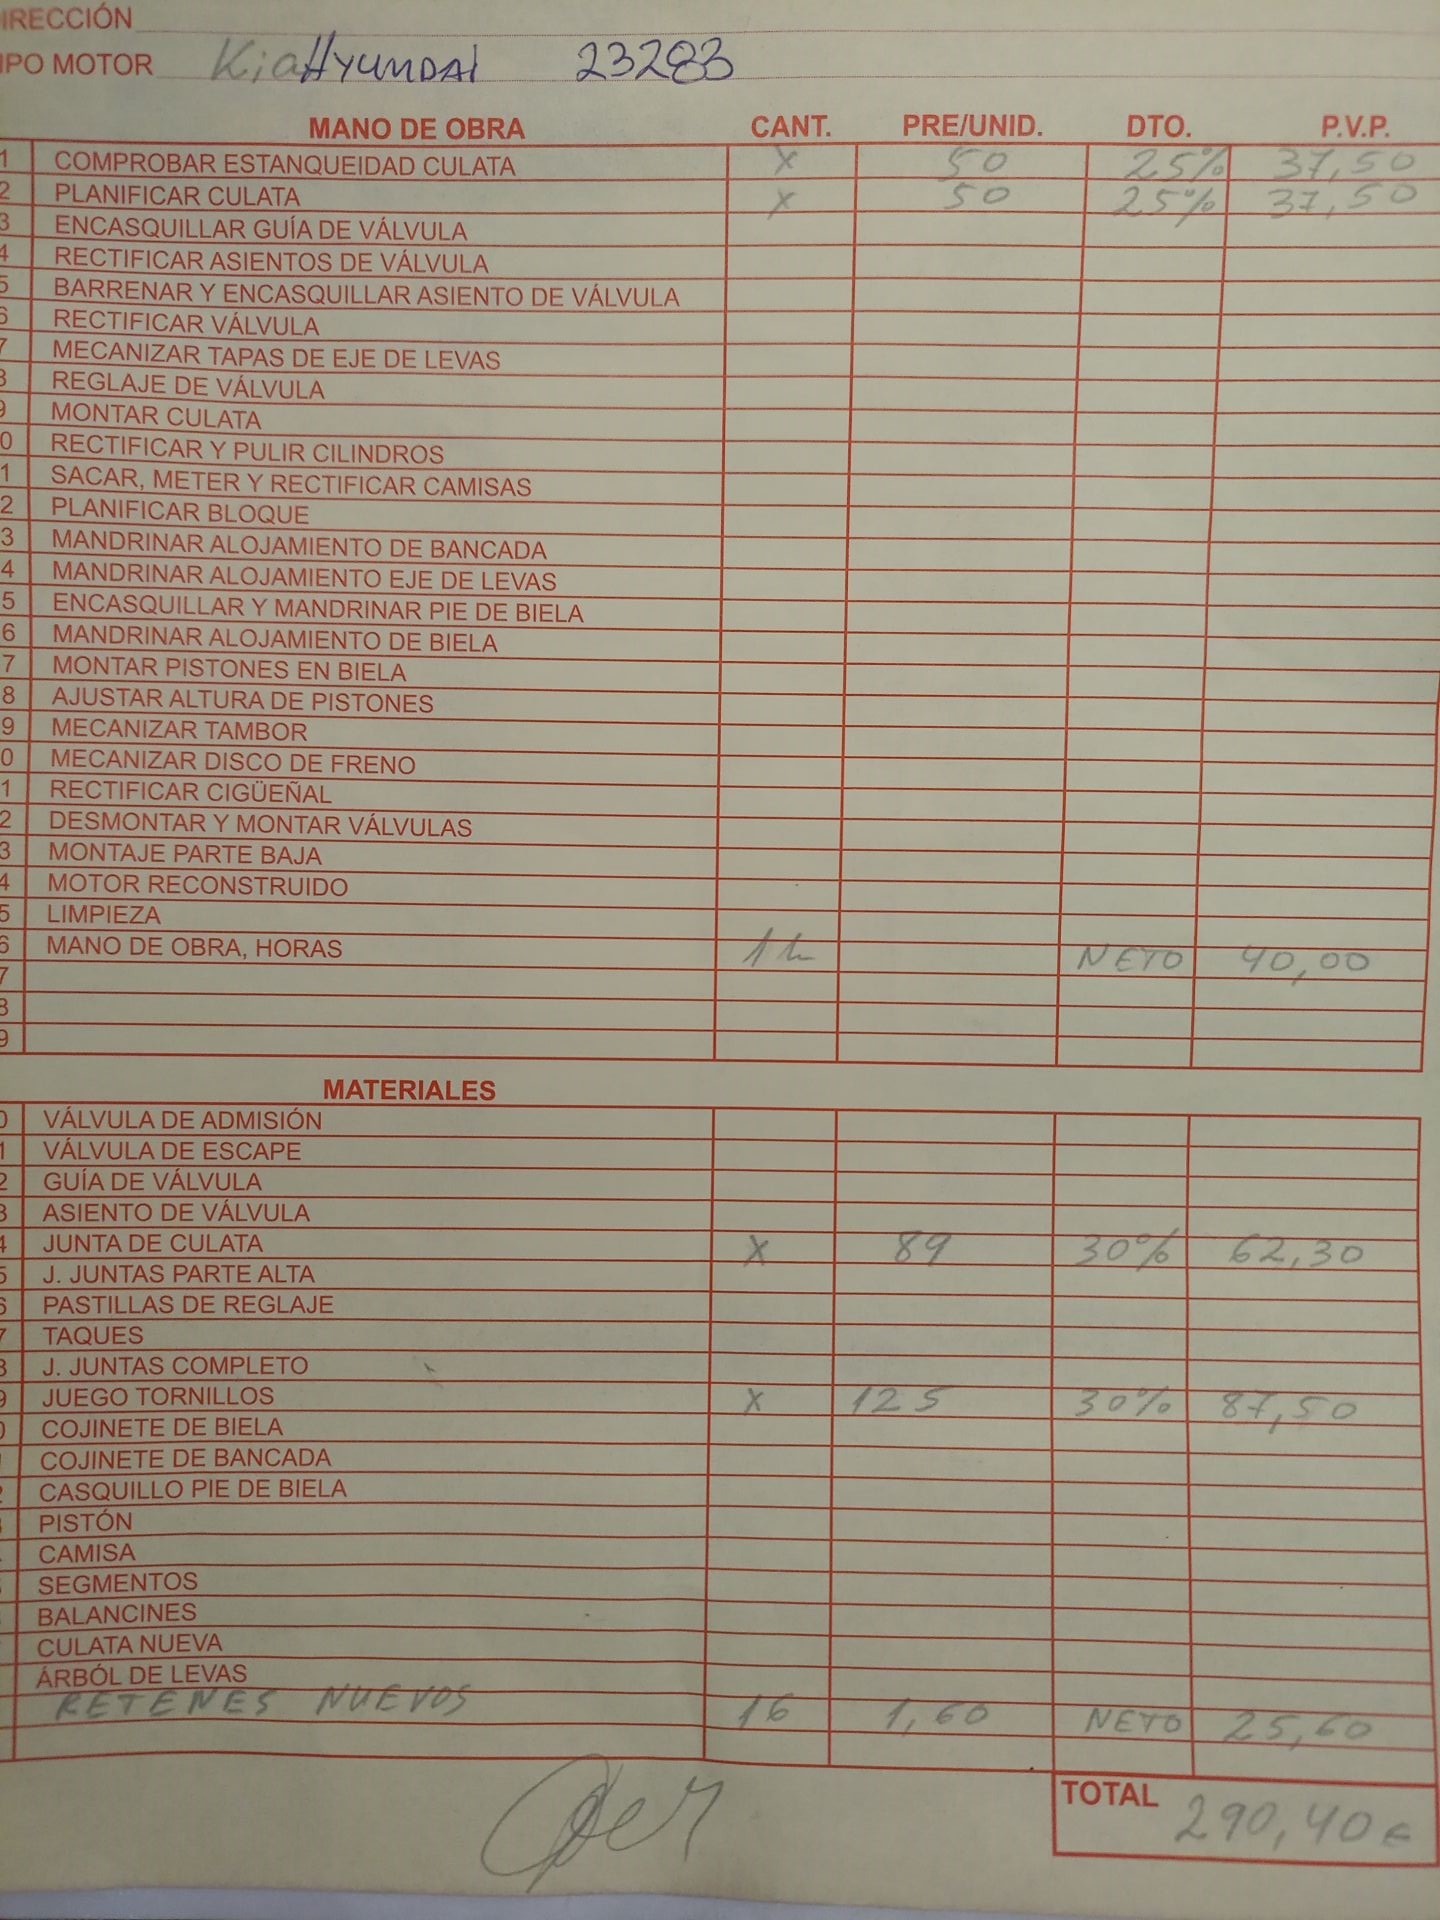 IRECCIÓN
IPO MOTOR Kia HYUNDAI 23283
MANO DE OBRA CANT. PRE/UNID. DTO. P.V.P.
1 COMPROBAR ESTANQUEIDAD CULATA X 50 25% 37,50
2 PLANIFICAR CULATA X 50 25% 37,50
3 ENCASQUILLAR GUÍA DE VÁLVULA
4 RECTIFICAR ASIENTOS DE VÁLVULA
5 BARRENAR Y ENCASQUILLAR ASIENTO DE VÁLVULA
6 RECTIFICAR VÁLVULA
7 MECANIZAR TAPAS DE EJE DE LEVAS
8 REGLAJE DE VÁLVULA
9 MONTAR CULATA
0 RECTIFICAR Y PULIR CILINDROS
1 SACAR, METER Y RECTIFICAR CAMISAS
2 PLANIFICAR BLOQUE
3 MANDRINAR ALOJAMIENTO DE BANCADA
4 MANDRINAR ALOJAMIENTO EJE DE LEVAS
5 ENCASQUILLAR Y MANDRINAR PIE DE BIELA
6 MANDRINAR ALOJAMIENTO DE BIELA
7 MONTAR PISTONES EN BIELA
8 AJUSTAR ALTURA DE PISTONES
9 MECANIZAR TAMBOR
0 MECANIZAR DISCO DE FRENO
1 RECTIFICAR CIGÜEÑAL
2 DESMONTAR Y MONTAR VÁLVULAS
3 MONTAJE PARTE BAJA
4 MOTOR RECONSTRUIDO
5 LIMPIEZA
6 MANO DE OBRA, HORAS 1 h NETO 40,00
7
8
9
MATERIALES
0 VÁLVULA DE ADMISIÓN
1 VÁLVULA DE ESCAPE
2 GUÍA DE VÁLVULA
3 ASIENTO DE VÁLVULA
4 JUNTA DE CULATA X 89 30% 62,30
5 J. JUNTAS PARTE ALTA
6 PASTILLAS DE REGLAJE
7 TAQUES
8 J. JUNTAS COMPLETO
9 JUEGO TORNILLOS X 125 30% 87,50
0 COJINETE DE BIELA
COJINETE DE BANCADA
2 CASQUILLO PIE DE BIELA
PISTÓN
CAMISA
SEGMENTOS
BALANCINES
CULATA NUEVA
ÁRBÓL DE LEVAS
RETENES NUEVOS 16 1,60 NETO 25,60
TOTAL 290,40 €